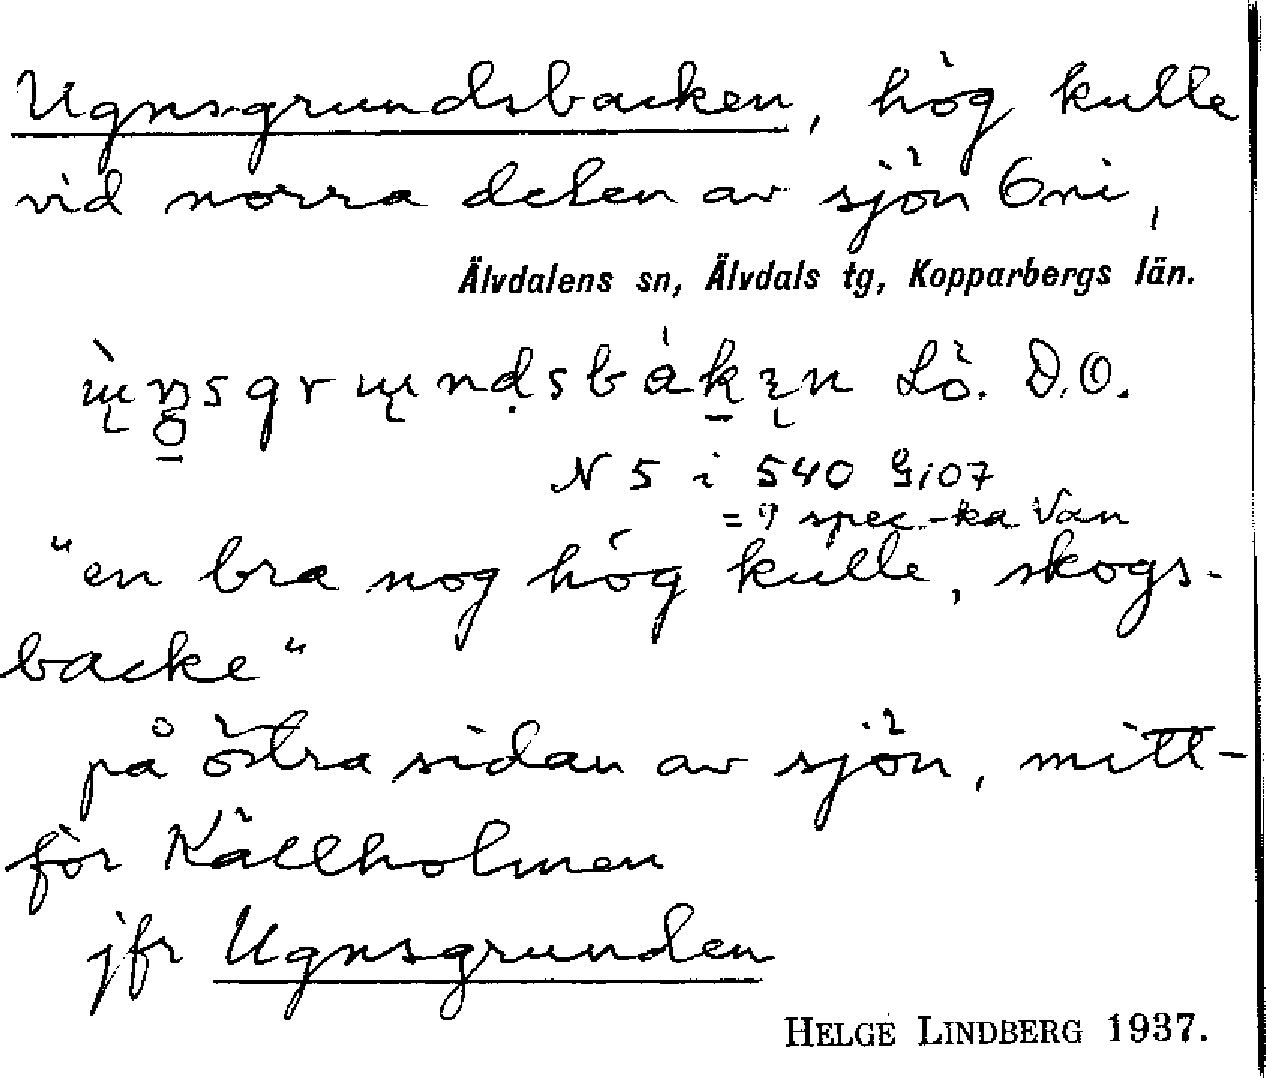 Ugnsgrundsbacken, hög kulle
vid norra delen av sjön Öni,
Älvdalens sn, Älvdals tg, Kopparbergs län.
Lö. D.O.
N 5 i 540
= ? spec.-ka Van
"en bra nog hög kulle, skogs-
backe"
på östra sidan av sjön, mitt-
för Källholmen
jfr Ugnsgrunden
HELGE LINDBERG 1937.